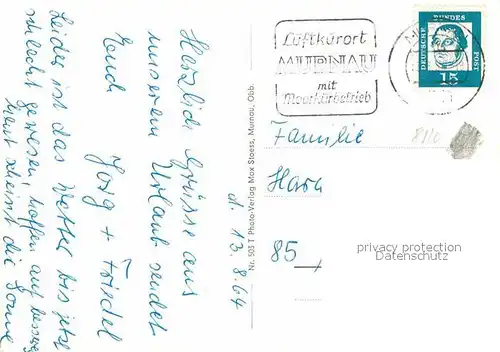 Luftkurort
MURNAU
mit
Moorkurbetrieb
DEUTSCHE BUNDES POST
15
d. 13.8.64
Herzliche Grüsse aus
unserem Urlaub sendet
Euch
Jörg + Friedel
Leider ist das Wetter bis jetzt
schlecht gewesen, hoffen auf besseres
heut scheint die Sonne
Nr. 505 T Photo-Verlag Max Stoess, Murnau, Obb.
Familie
Hara
85
privacy protection
Datenschutz